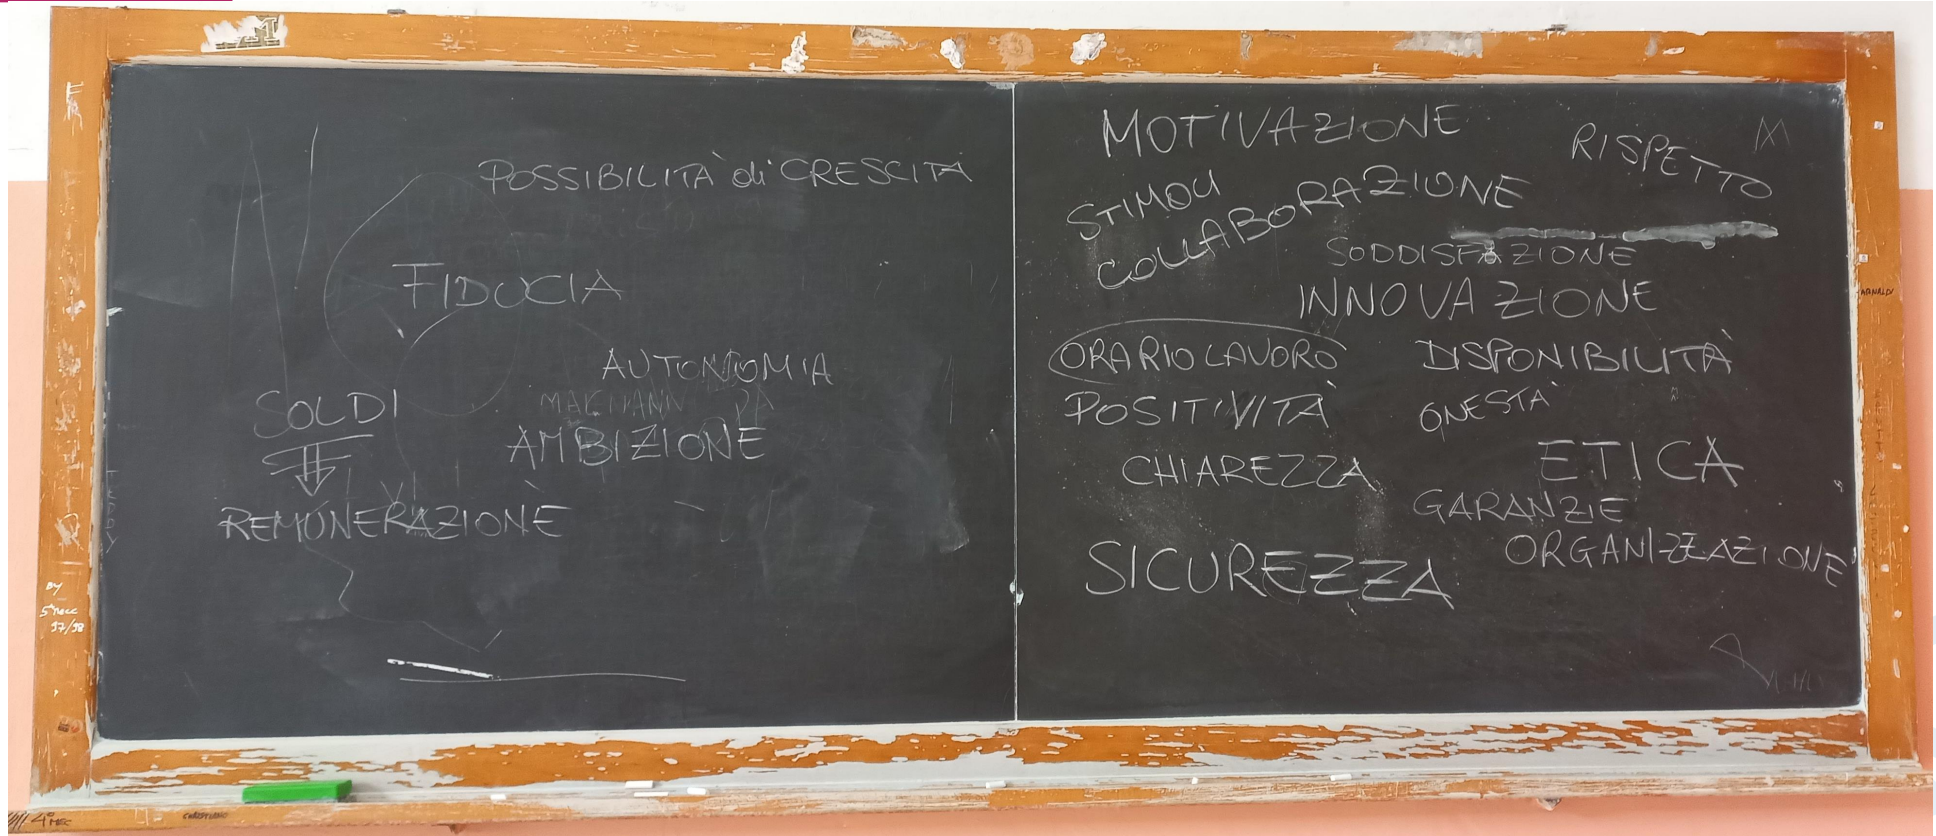 POSSIBILITÀ di CRESCITA
FIDUCIA
AUTONOMIA
AMBIZIONE
SOLDI
REMUNERAZIONE
MOTIVAZIONE
RISPETTO
STIMOLI
COLLABORAZIONE
SODDISFAZIONE
INNOVAZIONE
ORARIO LAVORO
DISPONIBILITÀ
POSITIVITÀ
ONESTÀ
CHIAREZZA
ETICA
GARANZIE
ORGANIZZAZIONE
SICUREZZA
TEDDY
BY
97/98
4°